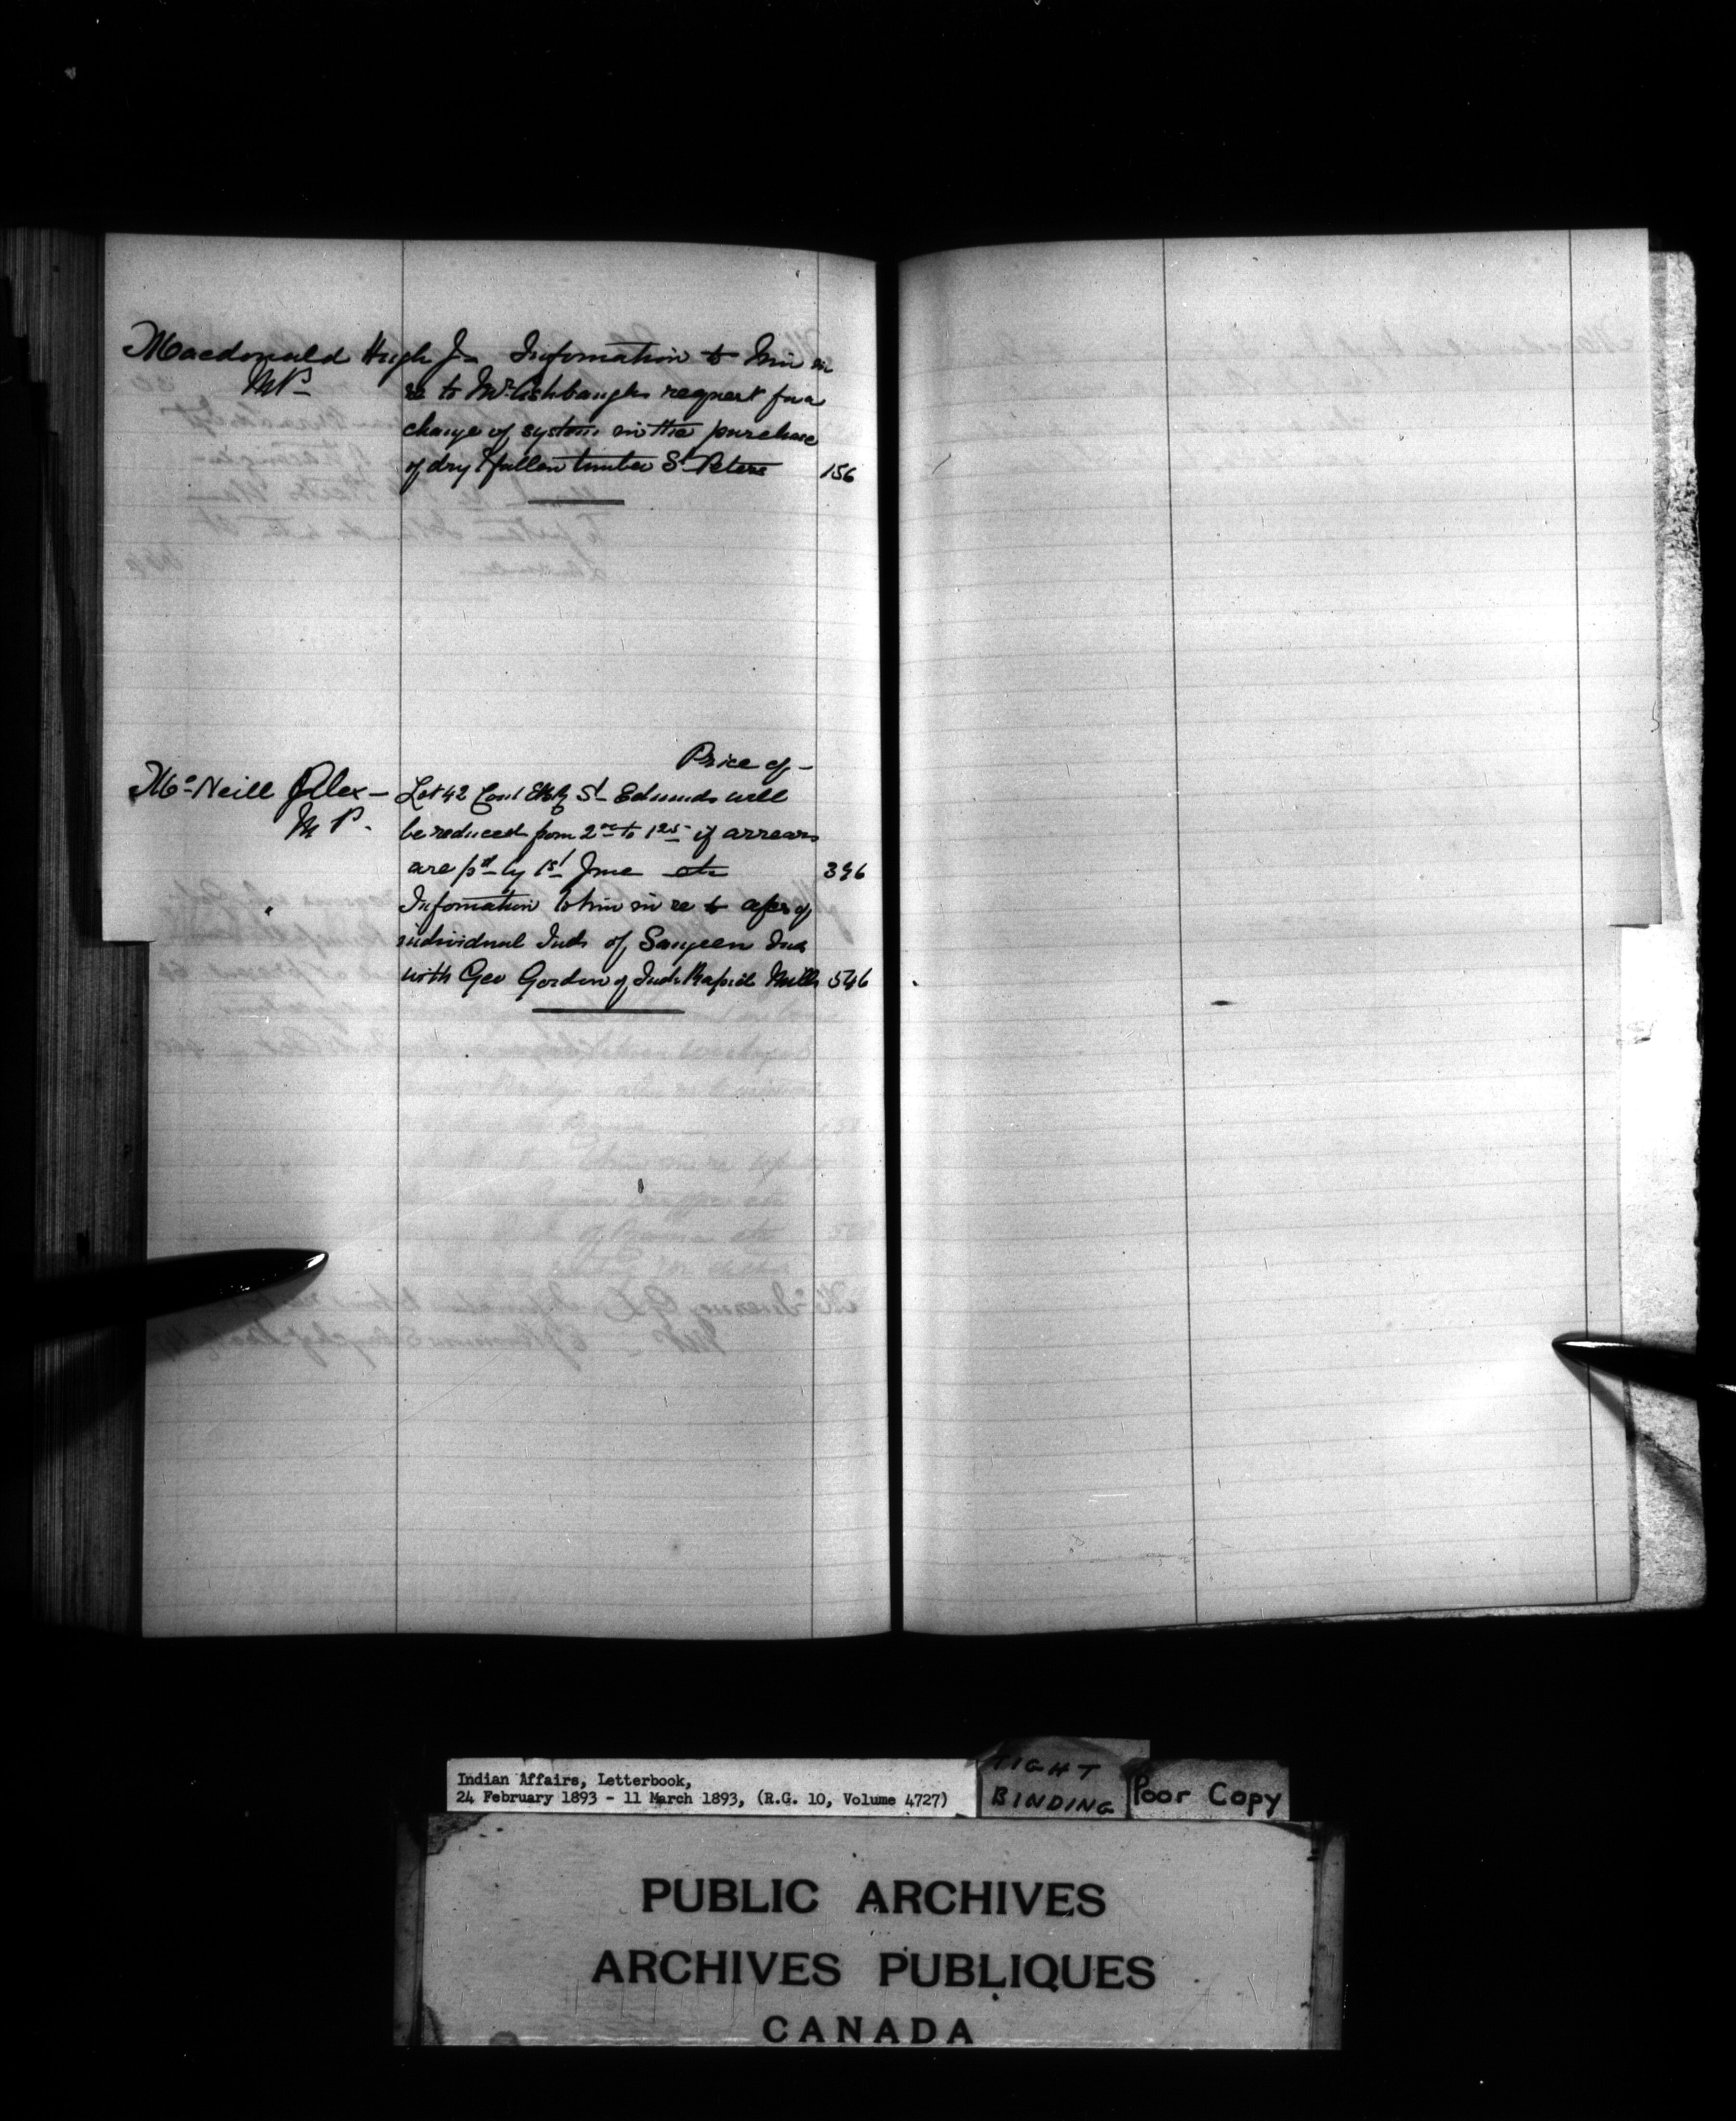 Macdonald Hugh Jn Information to him in
MP re to Mr. Ashbaughs request for a
change of system in the purchase
of dry & fallen timber St Peters 156
Price of
McNeill Alex M.P. Lot 42 Con 1 St Edmunds will
be reduced from 2 00 to 1 25 if arrears
are pd by 1st June etc 396
Information to him in re to of
individual Inds of Saugeen Inds
with Geo Gordon of Inds Rapids Mills 546
Indian Affairs, Letterbook,
24 February 1893 - 11 March 1893, (R.G. 10, Volume 4727)
TIGHT
BINDING
Poor Copy
PUBLIC ARCHIVES
ARCHIVES PUBLIQUES
CANADA